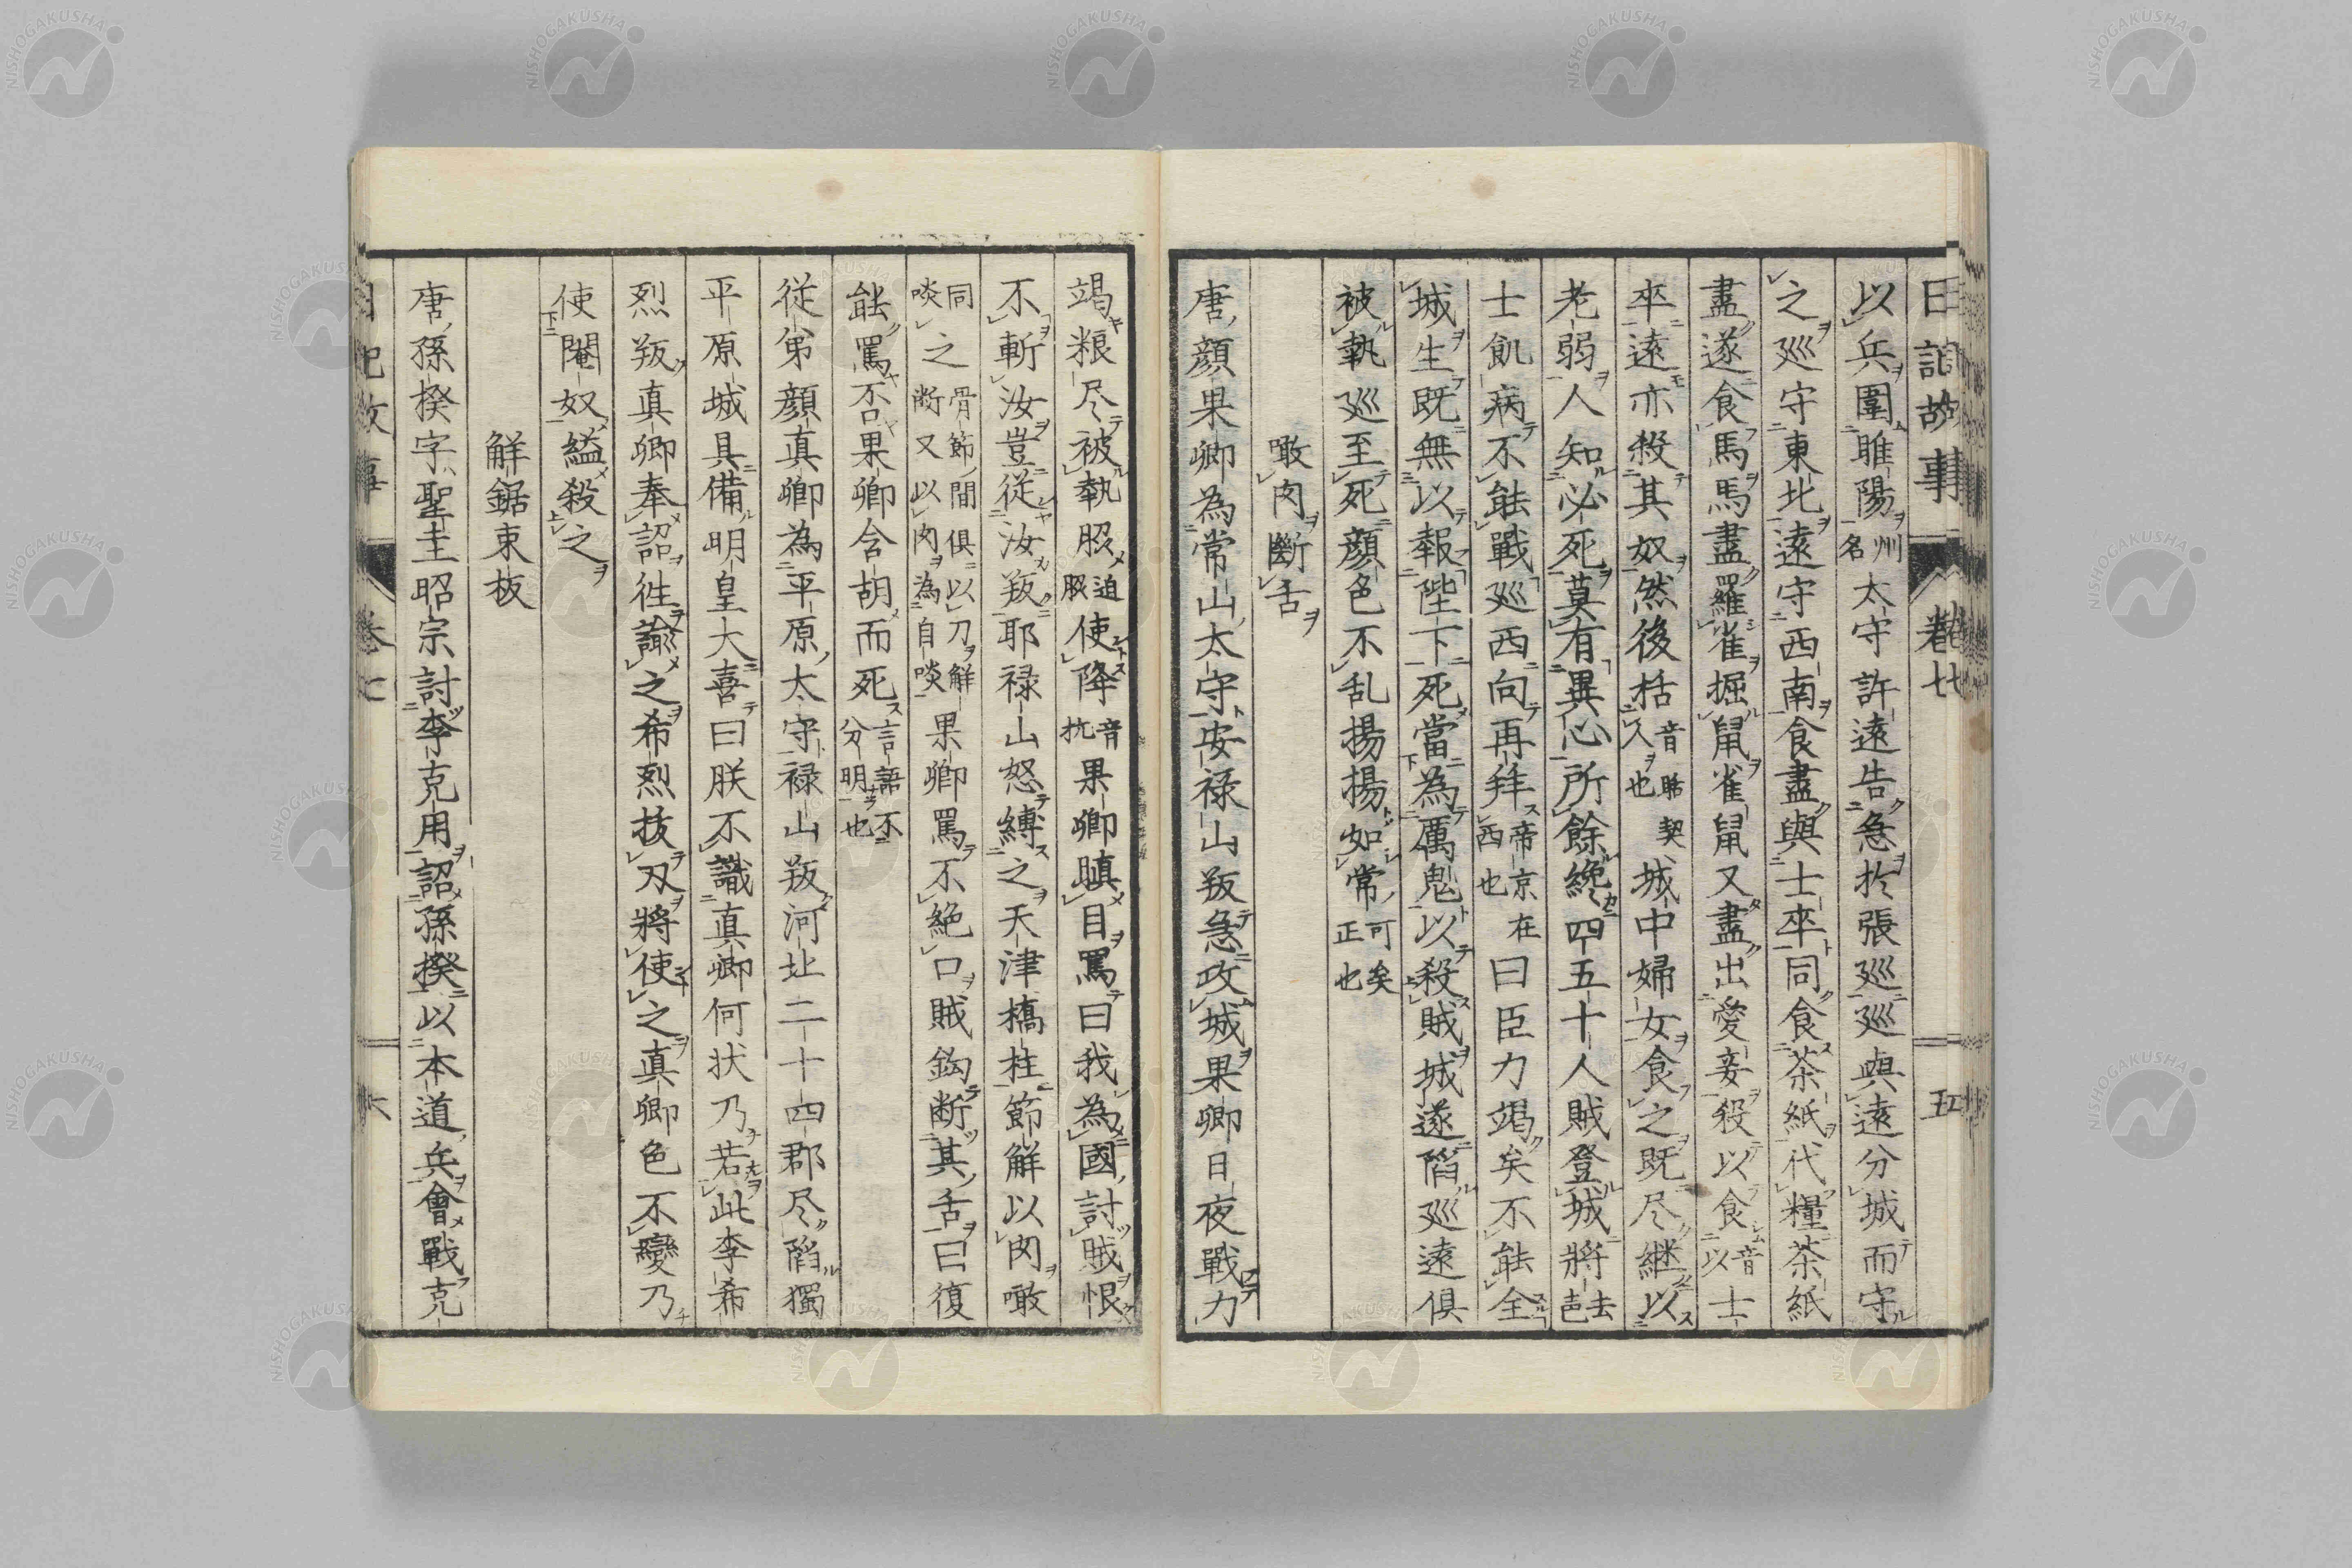 日記故事 卷七 五
以兵圍雎陽州名太守許遠告急於張巡巡與遠分城而守
之巡守東北遠守西南食盡與士卒同食茶紙代糧茶紙
盡遂食馬馬盡羅雀掘鼠雀鼠又盡出愛妾殺以食音以士
卒遠亦殺其奴然後括音聒契久也城中婦女食之既尽継以
老弱人知必死莫有異心所餘纔四五十人賊登城將去邑
士飢病不能戰巡西向再拜帝京在西也曰臣力竭矣不能全
城生既無以報陛下死當為厲鬼以殺賊城遂陷巡遠俱
被執巡至死顔色不乱揚揚如常可矣正也
噉肉斷舌
唐顔果卿為常山太守安禄山叛急攻城果卿日夜戰力
竭粮尽被執脅迫使降音抗果卿瞋目罵曰我為國討賊恨
不斬汝豈從汝叛耶禄山怒縛之天津橋柱節解以肉噉
同啖之骨節間俱以刀解断又以肉為自啖果卿罵不絶口賊鈎断其舌曰復
能罵否果卿含胡而死言語不分明也
從弟顔真卿為平原太守禄山叛河北二十四郡尽陷獨
平原城具備明皇大喜曰朕不識真卿何状乃若此李希
烈叛真卿奉詔徃諭之希烈抜刃將使之真卿色不變乃
使閹奴縊殺之
解鋸束板
唐孫揆字聖圭昭宗討李克用詔孫揆以本道兵會戰克
日記故事 卷七 六
NISHOGAKUSHA